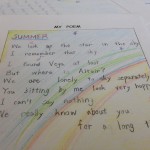 MY POEM
SUMMER
We look up the stars in the sky
I remember that sky
I could Vega at last
But where is Altair?
We are lonely to sky separately
You sitting by me look very happy
I can't say nothing
We really know about you
for a long t